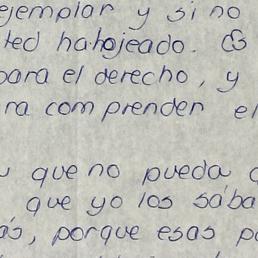 ejemplar y si no
ted hahojeado. Es
para el derecho, y
ra comprenden el
que no pueda
que yo los saba
ás, porque esas po